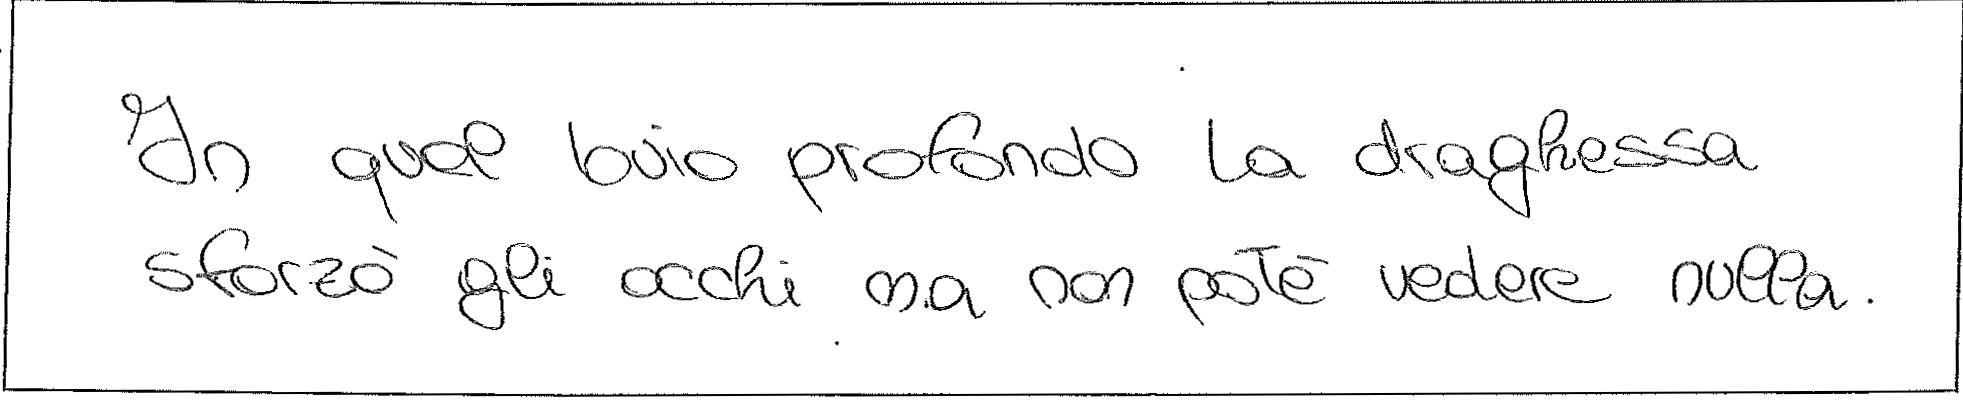 In quel buio profondo la draghessa
sforzò gli occhi ma non potè vedere nulla.